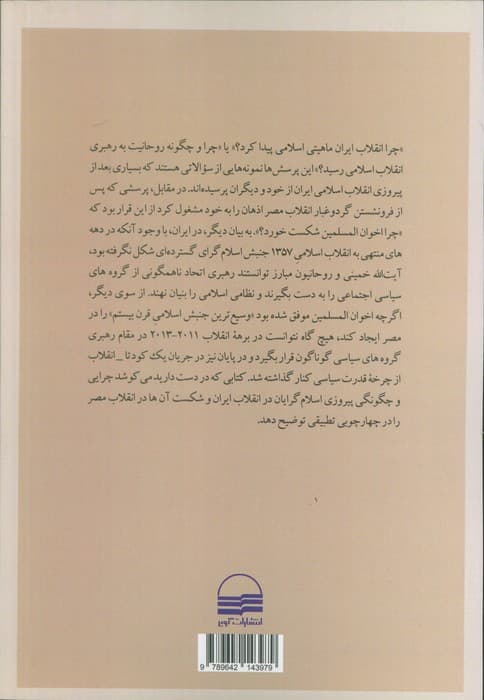 «چرا انقلاب ایران ماهیتی اسلامی پیدا کرد؟» یا «چرا و چگونه روحانیت به رهبری
انقلاب اسلامی رسید؟» این پرسش‌ها نمونه‌هایی از سؤالاتی هستند که بسیاری بعد از
پیروزی انقلاب اسلامی ایران از خود و دیگران پرسیده‌اند. در مقابل، پرسشی که پس
از فرونشستن گردوغبار انقلاب مصر اذهان را به خود مشغول کرد از این قرار بود که
«چرا اخوان المسلمین شکست خورد؟». به بیان دیگر، در ایران، با وجود آنکه در دهه
های منتهی به انقلاب اسلامیِ ۱۳۵۷ جنبش اسلام گرای گسترده‌ای شکل نگرفته بود،
آیت‌الله خمینی و روحانیون مبارز توانستند رهبری اتحاد ناهمگونی از گروه های
سیاسی اجتماعی را به دست بگیرند و نظامی اسلامی را بنیان نهند. از سوی دیگر،
اگرچه اخوان المسلمین موفق شده بود «وسیع‌ترین جنبش اسلامیِ قرن بیستم» را در
مصر ایجاد کند، هیچ گاه نتوانست در برهۀ انقلاب ۲۰۱۱-۲۰۱۳ در مقام رهبری
گروه های سیاسی گوناگون قرار بگیرد و در پایان نیز در جریان یک کودتا _ انقلاب
از چرخۀ قدرت سیاسی کنار گذاشته شد. کتابی که در دست دارید می کوشد چرایی
و چگونگی پیروزی اسلام گرایان در انقلاب ایران و شکست آن ها در انقلاب مصر
را در چهارچوبی تطبیقی توضیح دهد.
انتشارات کویر
9 789642 143979